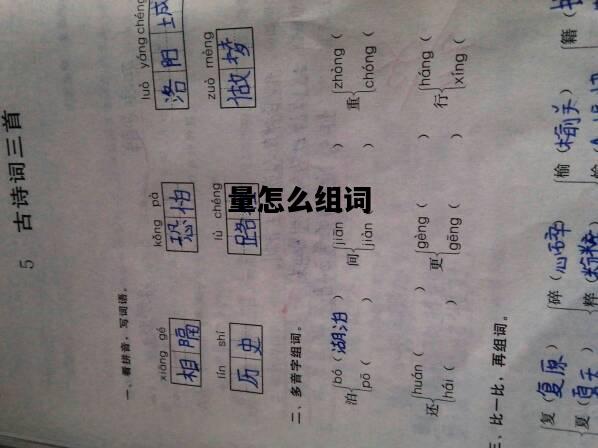 量怎么组词
5 古诗词三首
一、看拼音，写词语。
xiāng gé kǒng pà luò yáng chéng
相隔 恐怕 洛阳城
lín shí lù chéng zuò mèng
历史 路 做梦
二、多音字组词。
bó（湖泊） jiān zhòng（
泊 间 ） 重
pō（ ） jiàn chóng（
huán（ ） gèng（ ） háng（
还 更 行
hái（ gēng（ xíng（
三、比一比，再组词。
复（复原） 碎（心碎） 榆（榆关） 籍（
夏（夏天） 粹（